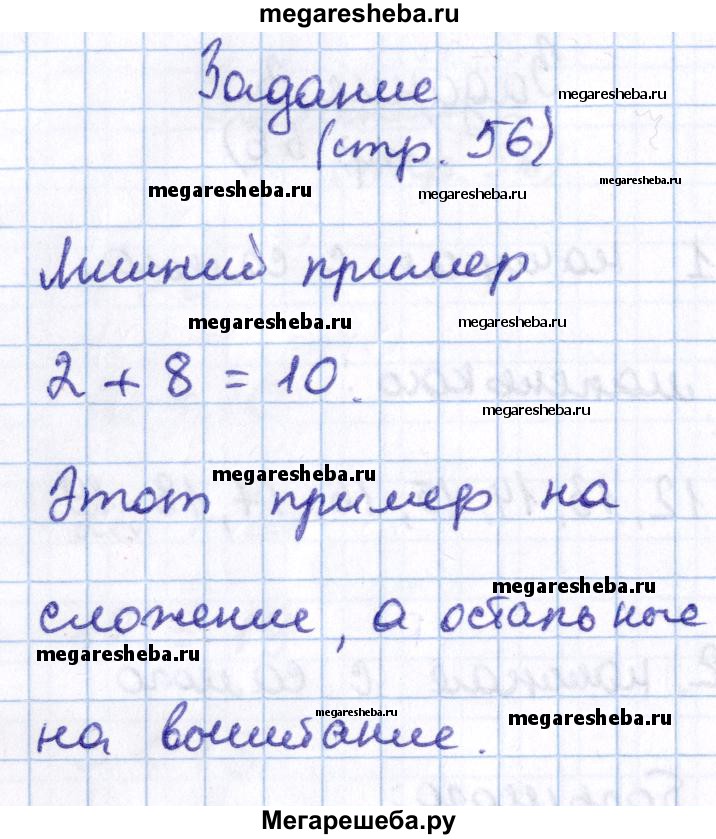 megaresheba.ru
Задание
megaresheba.ru
(стр. 56)
megaresheba.ru
megaresheba.ru
megaresheba.ru
Лишний пример
megaresheba.ru
megaresheba.ru
2 + 8 = 10.
megaresheba.ru
megaresheba.ru
Этот пример на
megaresheba.ru
сложение, а остальные
megaresheba.ru
megaresheba.ru
megaresheba.ru
на вычитание.
Мегарешеба.ру